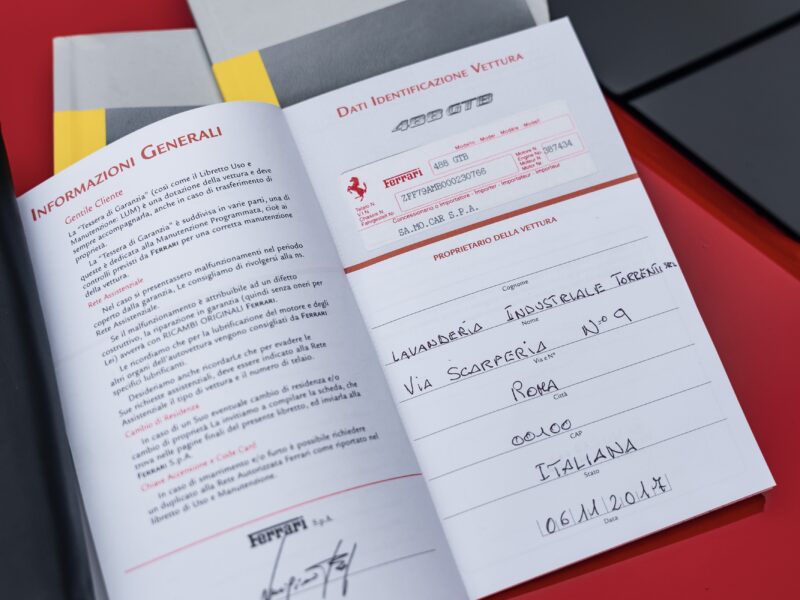 INFORMAZIONI GENERALI
Gentile Cliente
La "Tessera di Garanzia" (così come il Libretto Uso e
Manutenzione: LUM) è una dotazione della vettura e deve
sempre accompagnarla, anche in caso di trasferimento di
proprietà.
La "Tessera di Garanzia" è suddivisa in varie parti, una di
queste è dedicata alla Manutenzione Programmata, cioè ai
controlli previsti da FERRARI per una corretta manutenzione
della vettura.
Rete Assistenziale
Nel caso si presentassero malfunzionamenti nel periodo
coperto dalla garanzia, Le consigliamo di rivolgersi alla ns.
Rete Assistenziale.
Se il malfunzionamento è attribuibile ad un difetto
costruttivo, la riparazione in garanzia (quindi senza oneri per
Lei) avverrà con RICAMBI ORIGINALI FERRARI.
Le ricordiamo che per la lubrificazione del motore e degli
altri organi dell'autovettura vengono consigliati da FERRARI
specifici lubrificanti.
Desideriamo anche ricordarLe che per evadere le
Sue richieste assistenziali, deve essere indicato alla Rete
Assistenziale il tipo di vettura e il numero di telaio.
Cambio di Residenza
In caso di un Suo eventuale cambio di residenza e/o
cambio di proprietà La invitiamo a compilare la scheda, che
trova nelle pagine finali del presente libretto, ed inviarla alla
FERRARI S.p.A.
Chiave Accensione e Code Card
In caso di smarrimento e/o furto è possibile richiedere
un duplicato alla Rete Autorizzata Ferrari come riportato nel
libretto di Uso e Manutenzione.
Ferrari S.p.A.
DATI IDENTIFICAZIONE VETTURA
488 GTB
Modello - Model - Modèle - Modell
Ferrari
488 GTB
Motore N.
Engine No
Moteur N.
Motor N.
387434
Telaio N.
V.I.N.
Chassis N.
Fahrgestell Nr.
ZFF79AMB000230766
Concessionario o Importatore - Importer - Importateur - Importeur
SA.MO.CAR S.P.A.
PROPRIETARIO DELLA VETTURA
Cognome
LAVANDERIA INDUSTRIALE TORRENTI SRL
Nome
VIA SCARPERIA N.° 9
Via e N°
ROMA
Città
00100
CAP
ITALIANA
Stato
06112017
Data